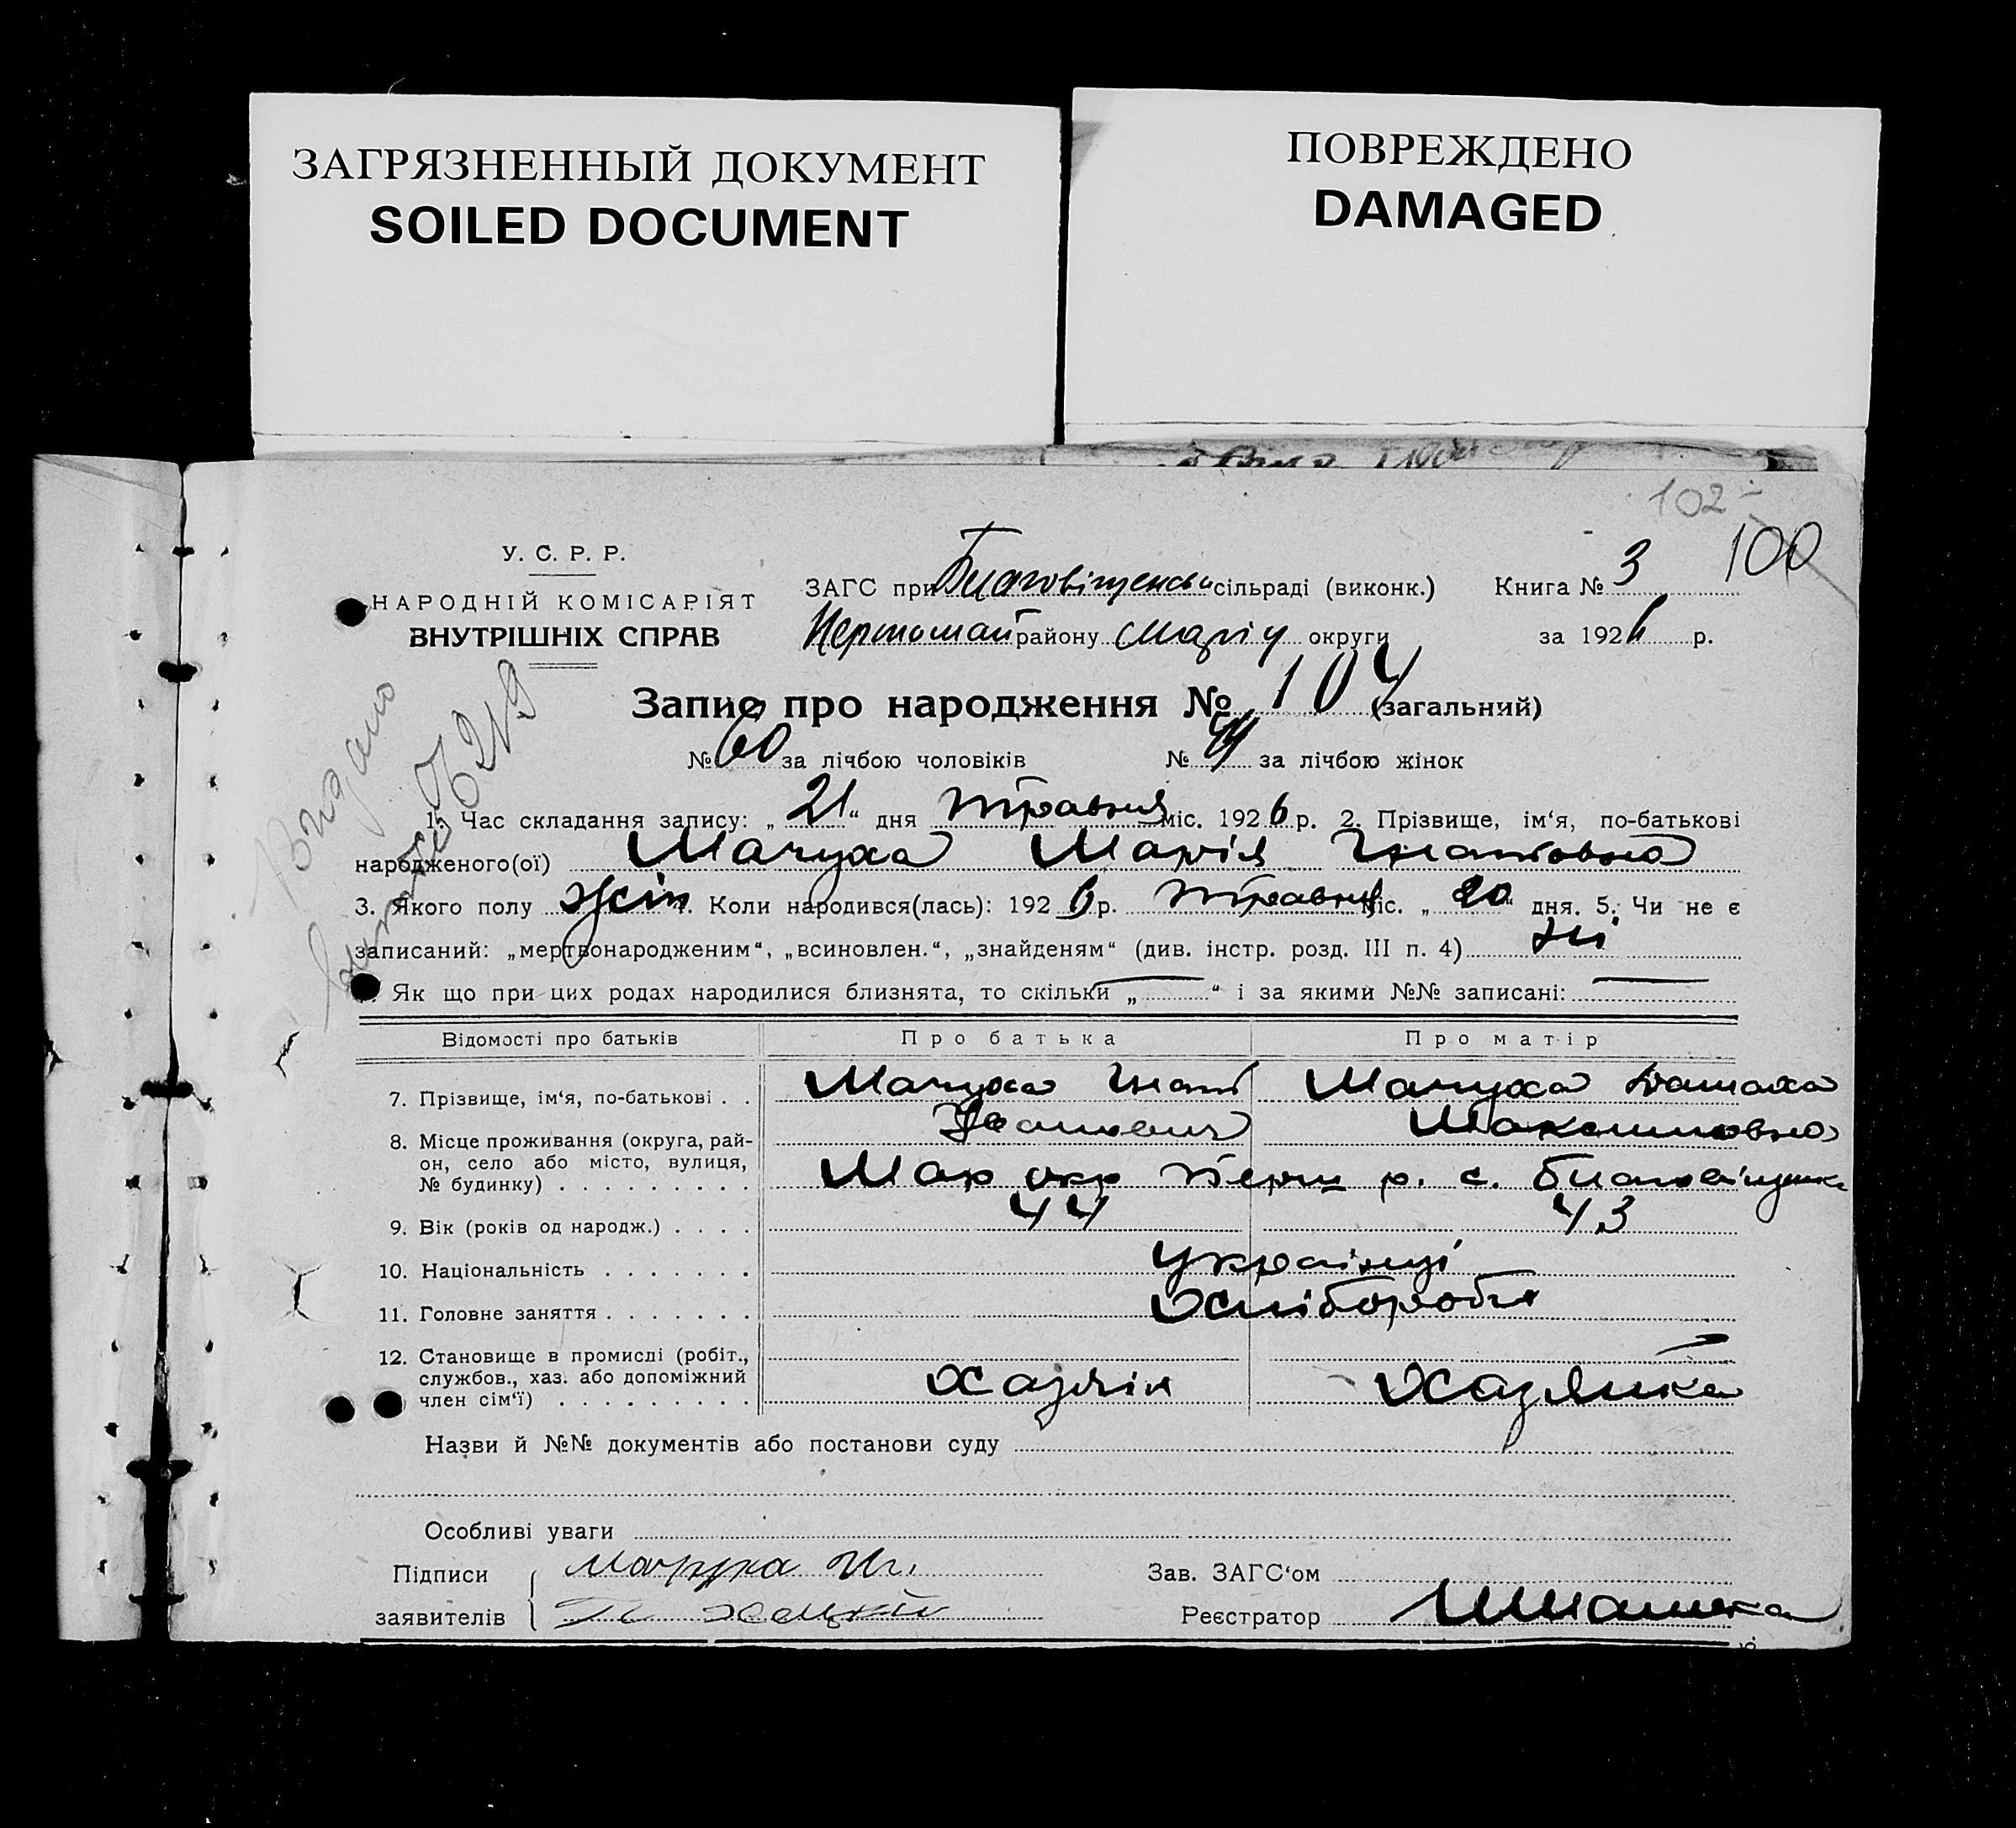 ЗАГРЯЗНЕННЫЙ ДОКУМЕНТ
SOILED DOCUMENT
ПОВРЕЖДЕНО
DAMAGED
102
100
У. С. Р. Р.
НАРОДНІЙ КОМІСАРІЯТ
ВНУТРІШНІХ СПРАВ
ЗАГС при Благовіщенськ сільраді (виконк.) Книга № 3
Першомай району Маріу округи за 1926 р.
Запис про народження № 104 (загальний)
№ 60 за лічбою чоловіків № 44 за лічбою жінок
Видано
1. Час складання запису: „21“ дня травня міс. 1926 р. 2. Прізвище, ім‘я, по-батькові
народженого(ої) Мачуха Марія Гнатовна
3. Якого полу жін 4. Коли народився(лась): 1926 р. травня міс. „20“ дня. 5. Чи не є
записаний: „мертвонародженим“, „всиновлен.“, „знайденям“ (див. інстр. розд. III п. 4) ні
Як що при цих родах народилися близнята, то скільки „ — “ і за якими №№ записані: —
Відомості про батьків Про батька Про матір
7. Прізвище, ім‘я, по-батькові . . Мачуха Гнат Іванович Мачуха Максимовна
8. Місце проживання (округа, рай-
он, село або місто, вулиця,
№ будинку) . . . . . . . . . Мар окр Перш р. с. Благовіщенка
9. Вік (років од народж.) . . . . 44 43
10. Національність . . . . . . . українці
11. Головне заняття . . . . . . . Хліборобя
12. Становище в промислі (робіт.,
службов., хаз. або допоміжний
член сім‘ї) . . . . . . . . . Хазяін Хазяйка
Назви й №№ документів або постанови суду
Особливі уваги
Підписи
заявителів
Мачуха Гн.
Зав. ЗАГС‘ом
Реєстратор